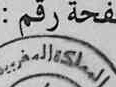 فحة رقم :
المملكة المغربية